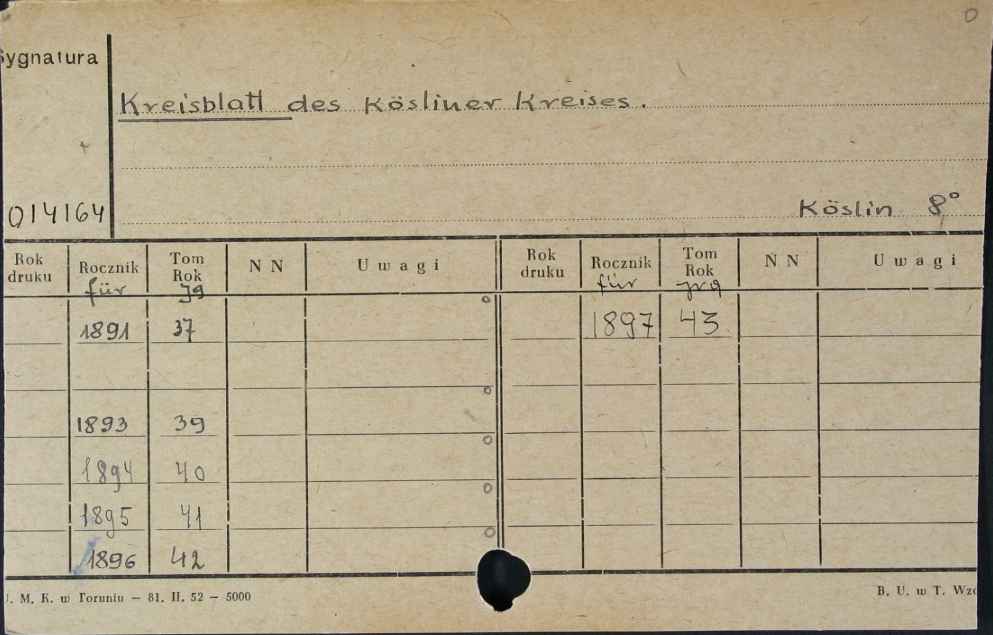 0
Sygnatura
Kreisblatt des Kösliner Kreises.
014164
Köslin 8°
Rok druku Rocznik für Tom Rok Jg N N Uwagi Rok druku Rocznik für Tom Rok Jrg N N Uwagi
1891 37 1897 43
1893 39
1894 40
1895 41
1896 42
M. K. w Toruniu — 81. II. 52 — 5000
B. U. w T.